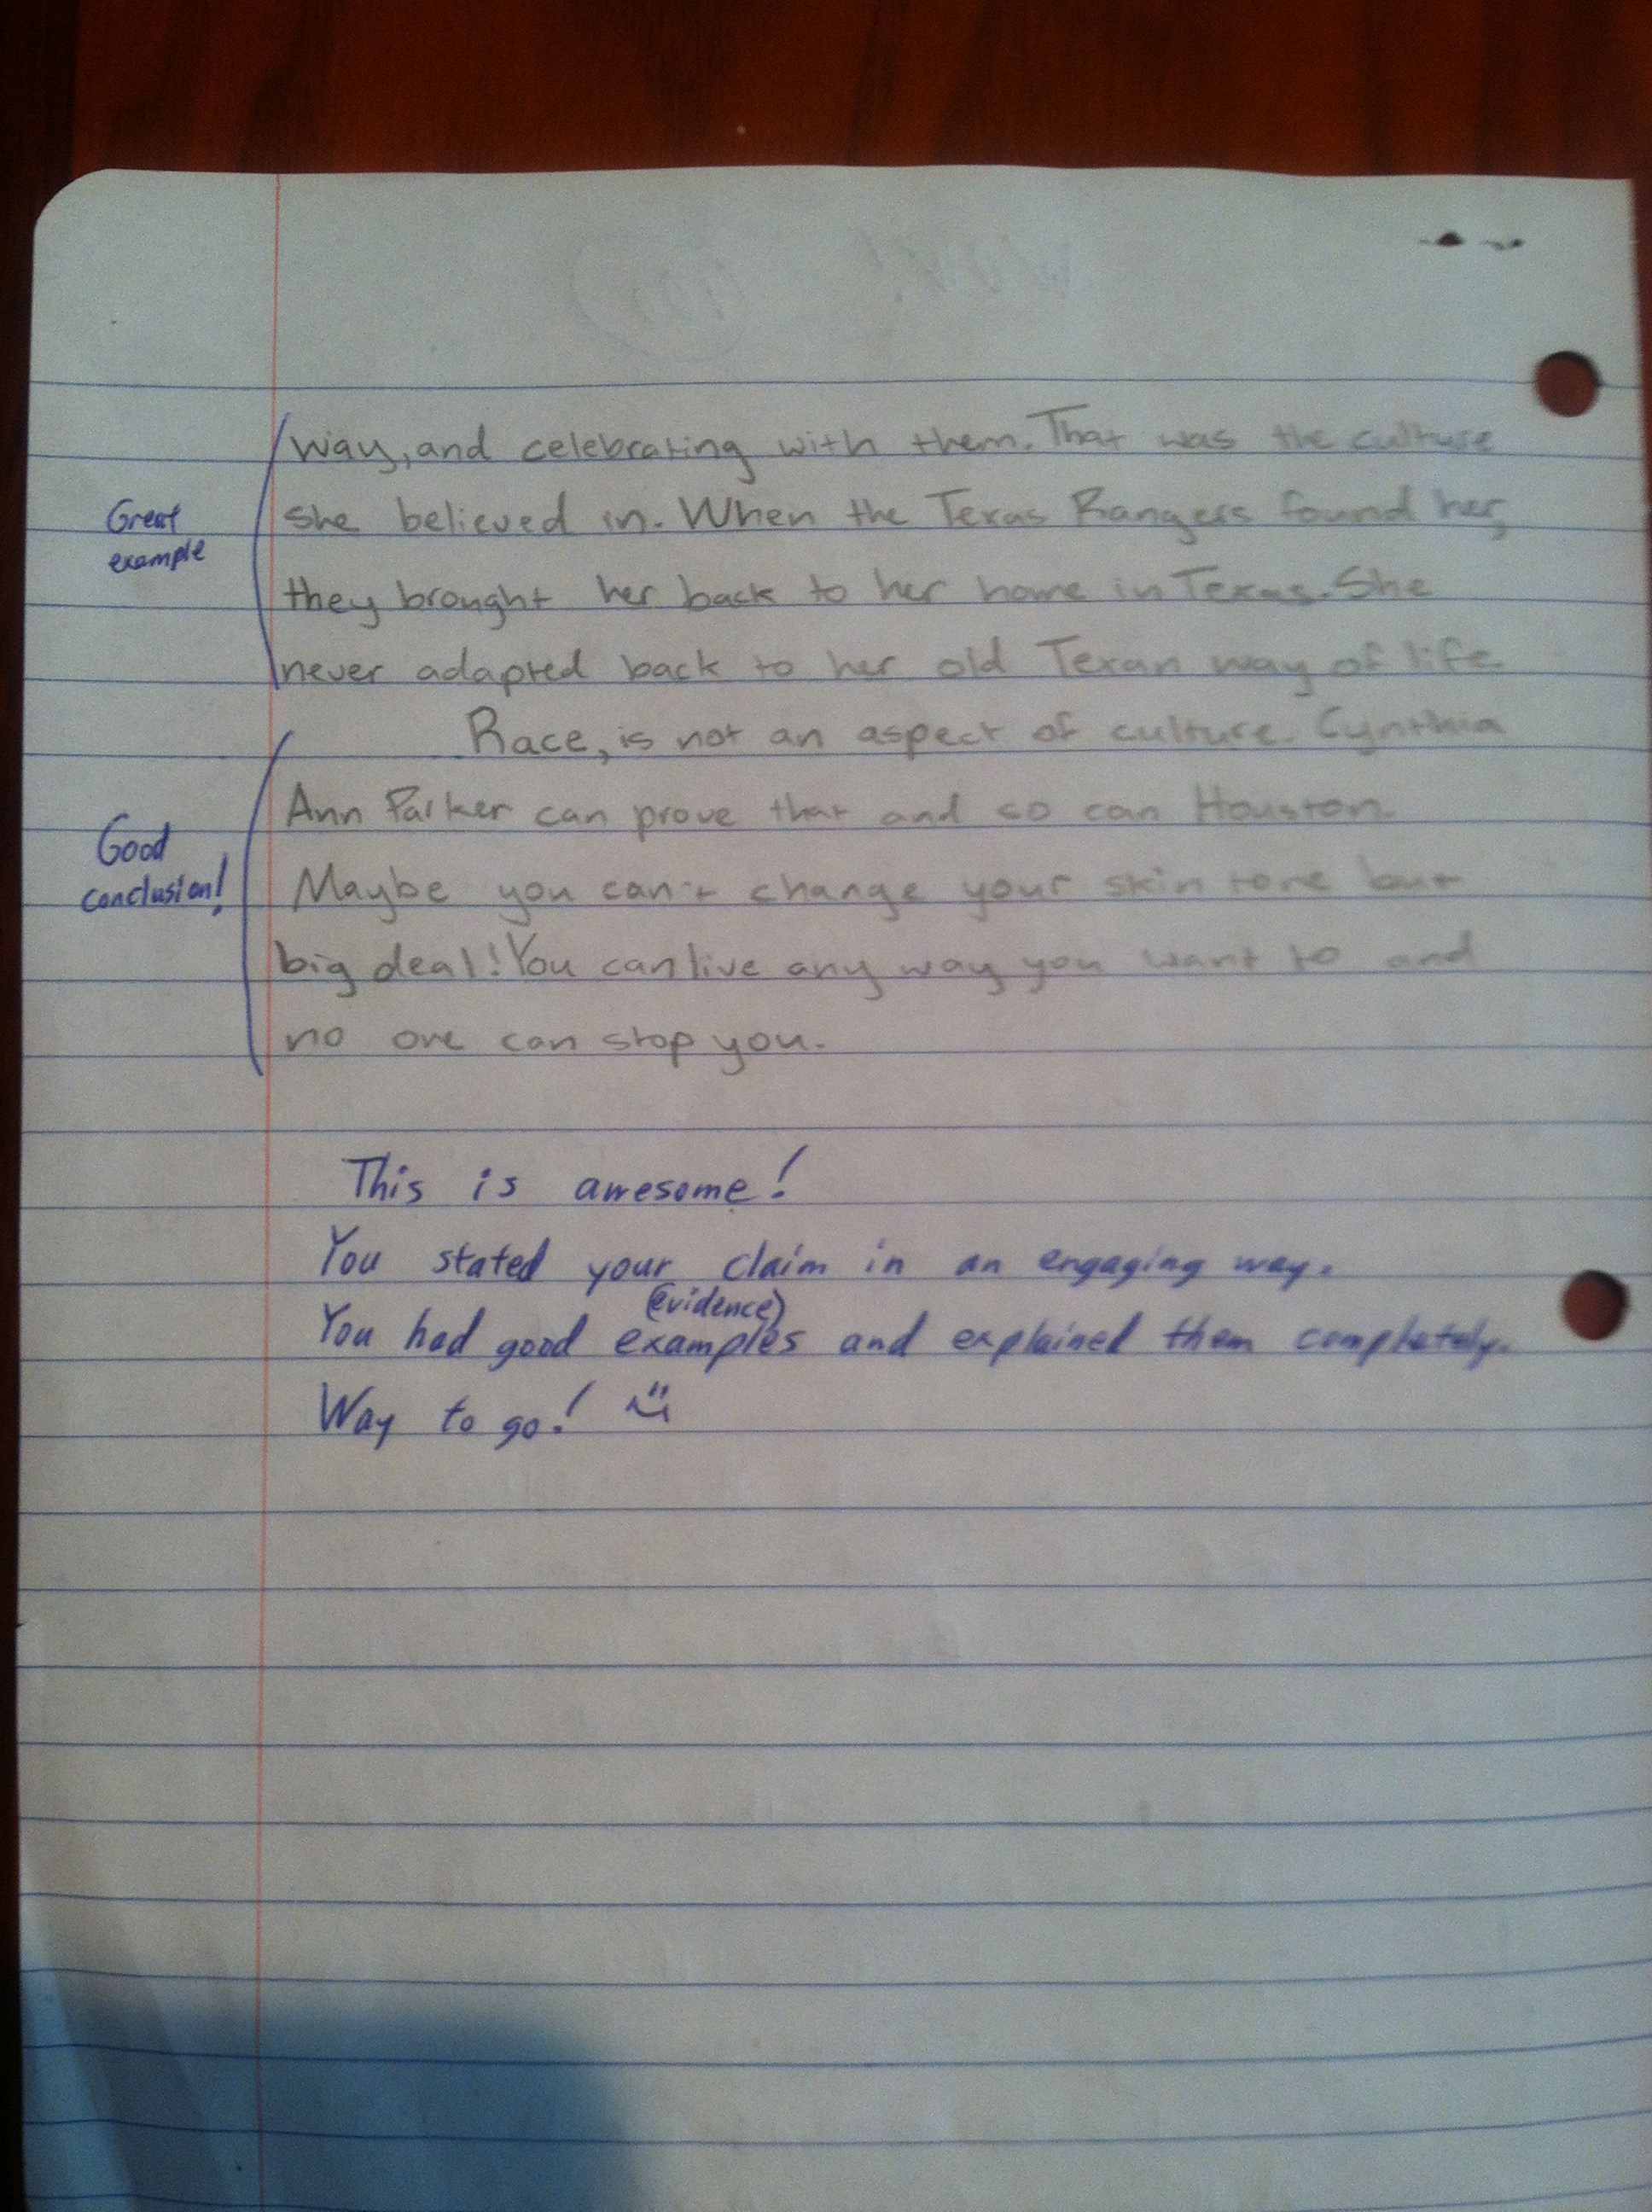 way, and celebrating with them. That was the culture
Great
example
she believed in. When the Texas Rangers found her,
they brought her back to her home in Texas. She
never adapted back to her old Texan way of life.
Race, is not an aspect of culture. Cynthia
Ann Parker can prove that and so can Houston.
Good
conclusion!
Maybe you can't change your skin tone but
big deal! You can live any way you want to and
no one can stop you.
This is awesome!
You stated your claim in an engaging way.
(evidence)
You had good examples and explained them completely.
Way to go!